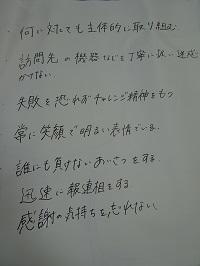 ・何に対しても主体的に取り組む
・訪問先の機器などを丁寧に扱い迷惑
かけない。
・失敗を恐れずチャレンジ精神をもつ
・常に笑顔で明るい表情でいる。
・誰にも負けないあいさつをする。
・迅速に報連相をする。
・感謝の気持ちを忘れない。